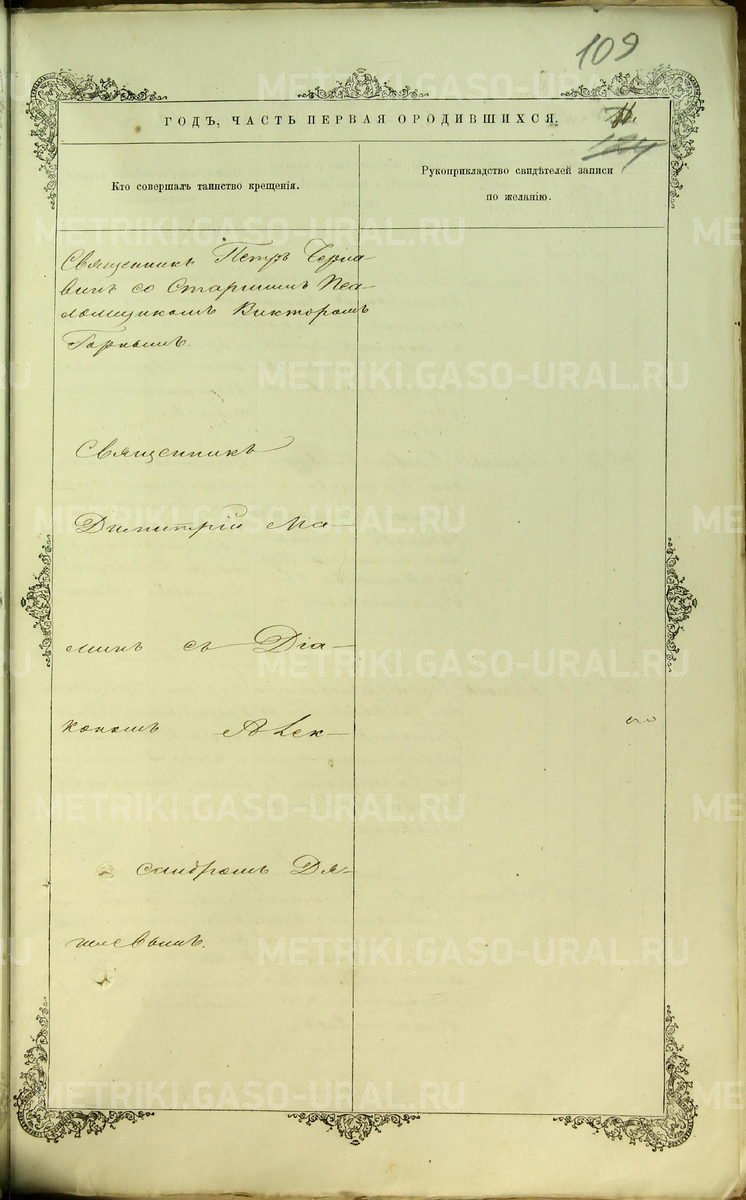 109
ГОДЪ, ЧАСТЬ ПЕРВАЯ О РОДИВШИХСЯ.
124
Кто совершалъ таинство крещенія.
Рукоприкладство свидѣтелей записи
по желанію.
Священникъ Петръ Черна-
винъ со Старшимъ Пса-
ломщикомъ Викторомъ
Священникъ
Димитрій Ма-
минъ съ Діа-
кономъ Алек-
сандромъ
METRIKI.GASO-URAL.RU